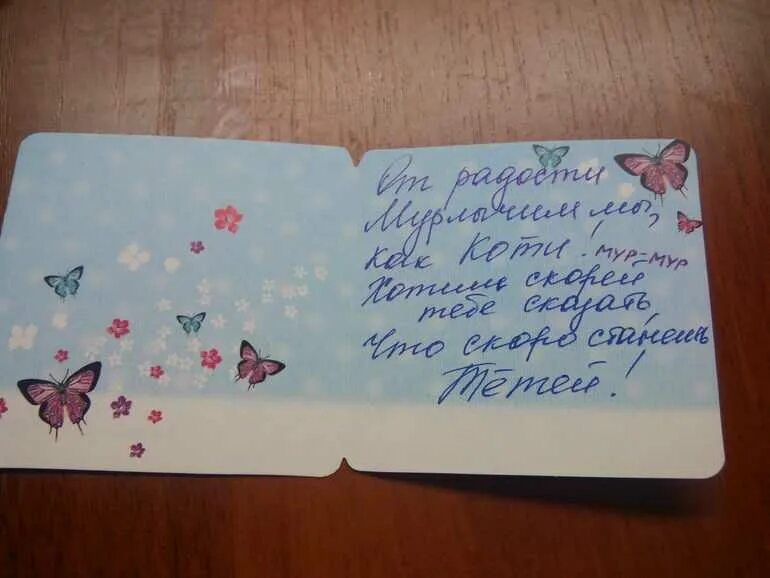 От радости
Мурлычим мы,
как Коти! МУР-МУР
Хотим скорей
тебе сказать,
Что скоро станешь
Тётей!